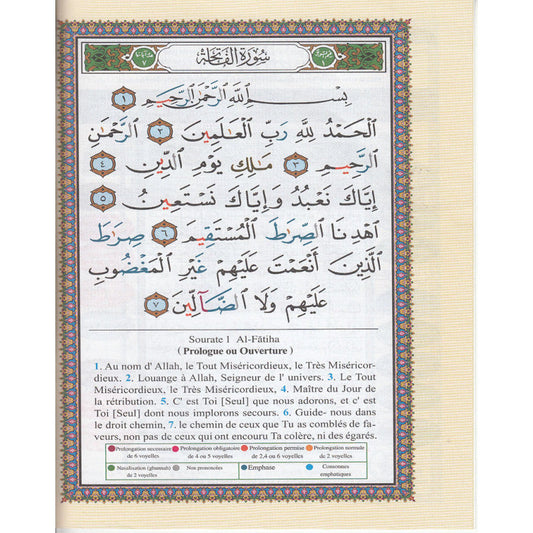 سُورَةُ الفَاتِحَةِ
بِسْمِ اللَّهِ الرَّحْمَٰنِ الرَّحِيمِ ١
الْحَمْدُ لِلَّهِ رَبِّ الْعَالَمِينَ ٢ الرَّحْمَٰنِ
الرَّحِيمِ ٣ مَالِكِ يَوْمِ الدِّينِ ٤
إِيَّاكَ نَعْبُدُ وَإِيَّاكَ نَسْتَعِينُ ٥
اهْدِنَا الصِّرَاطَ الْمُسْتَقِيمَ ٦ صِرَاطَ
الَّذِينَ أَنْعَمْتَ عَلَيْهِمْ غَيْرِ الْمَغْضُوبِ
عَلَيْهِمْ وَلَا الضَّالِّينَ ٧
Sourate 1 Al-Fâtiha
( Prologue ou Ouverture )
1. Au nom d' Allah, le Tout Miséricordieux, le Très Miséricor-
dieux. 2. Louange à Allah, Seigneur de l' univers. 3. Le Tout
Miséricordieux, le Très Miséricordieux, 4. Maître du Jour de
la rétribution. 5. C' est Toi [Seul] que nous adorons, et c' est
Toi [Seul] dont nous implorons secours. 6. Guide- nous dans
le droit chemin, 7. le chemin de ceux que Tu as comblés de fa-
veurs, non pas de ceux qui ont encouru Ta colère, ni des égarés.
Prolongation necessaire de 6 voyelles
Prolongation obligatoire de 4 ou 5 voyelles
Prolongation permise de 2,4 ou 6 voyelles
Prolongation normale de 2 voyelles
Nasalisation (ghunnah) de 2 voyelles
Non prononcées
Emphase
Consonnes emphatiques